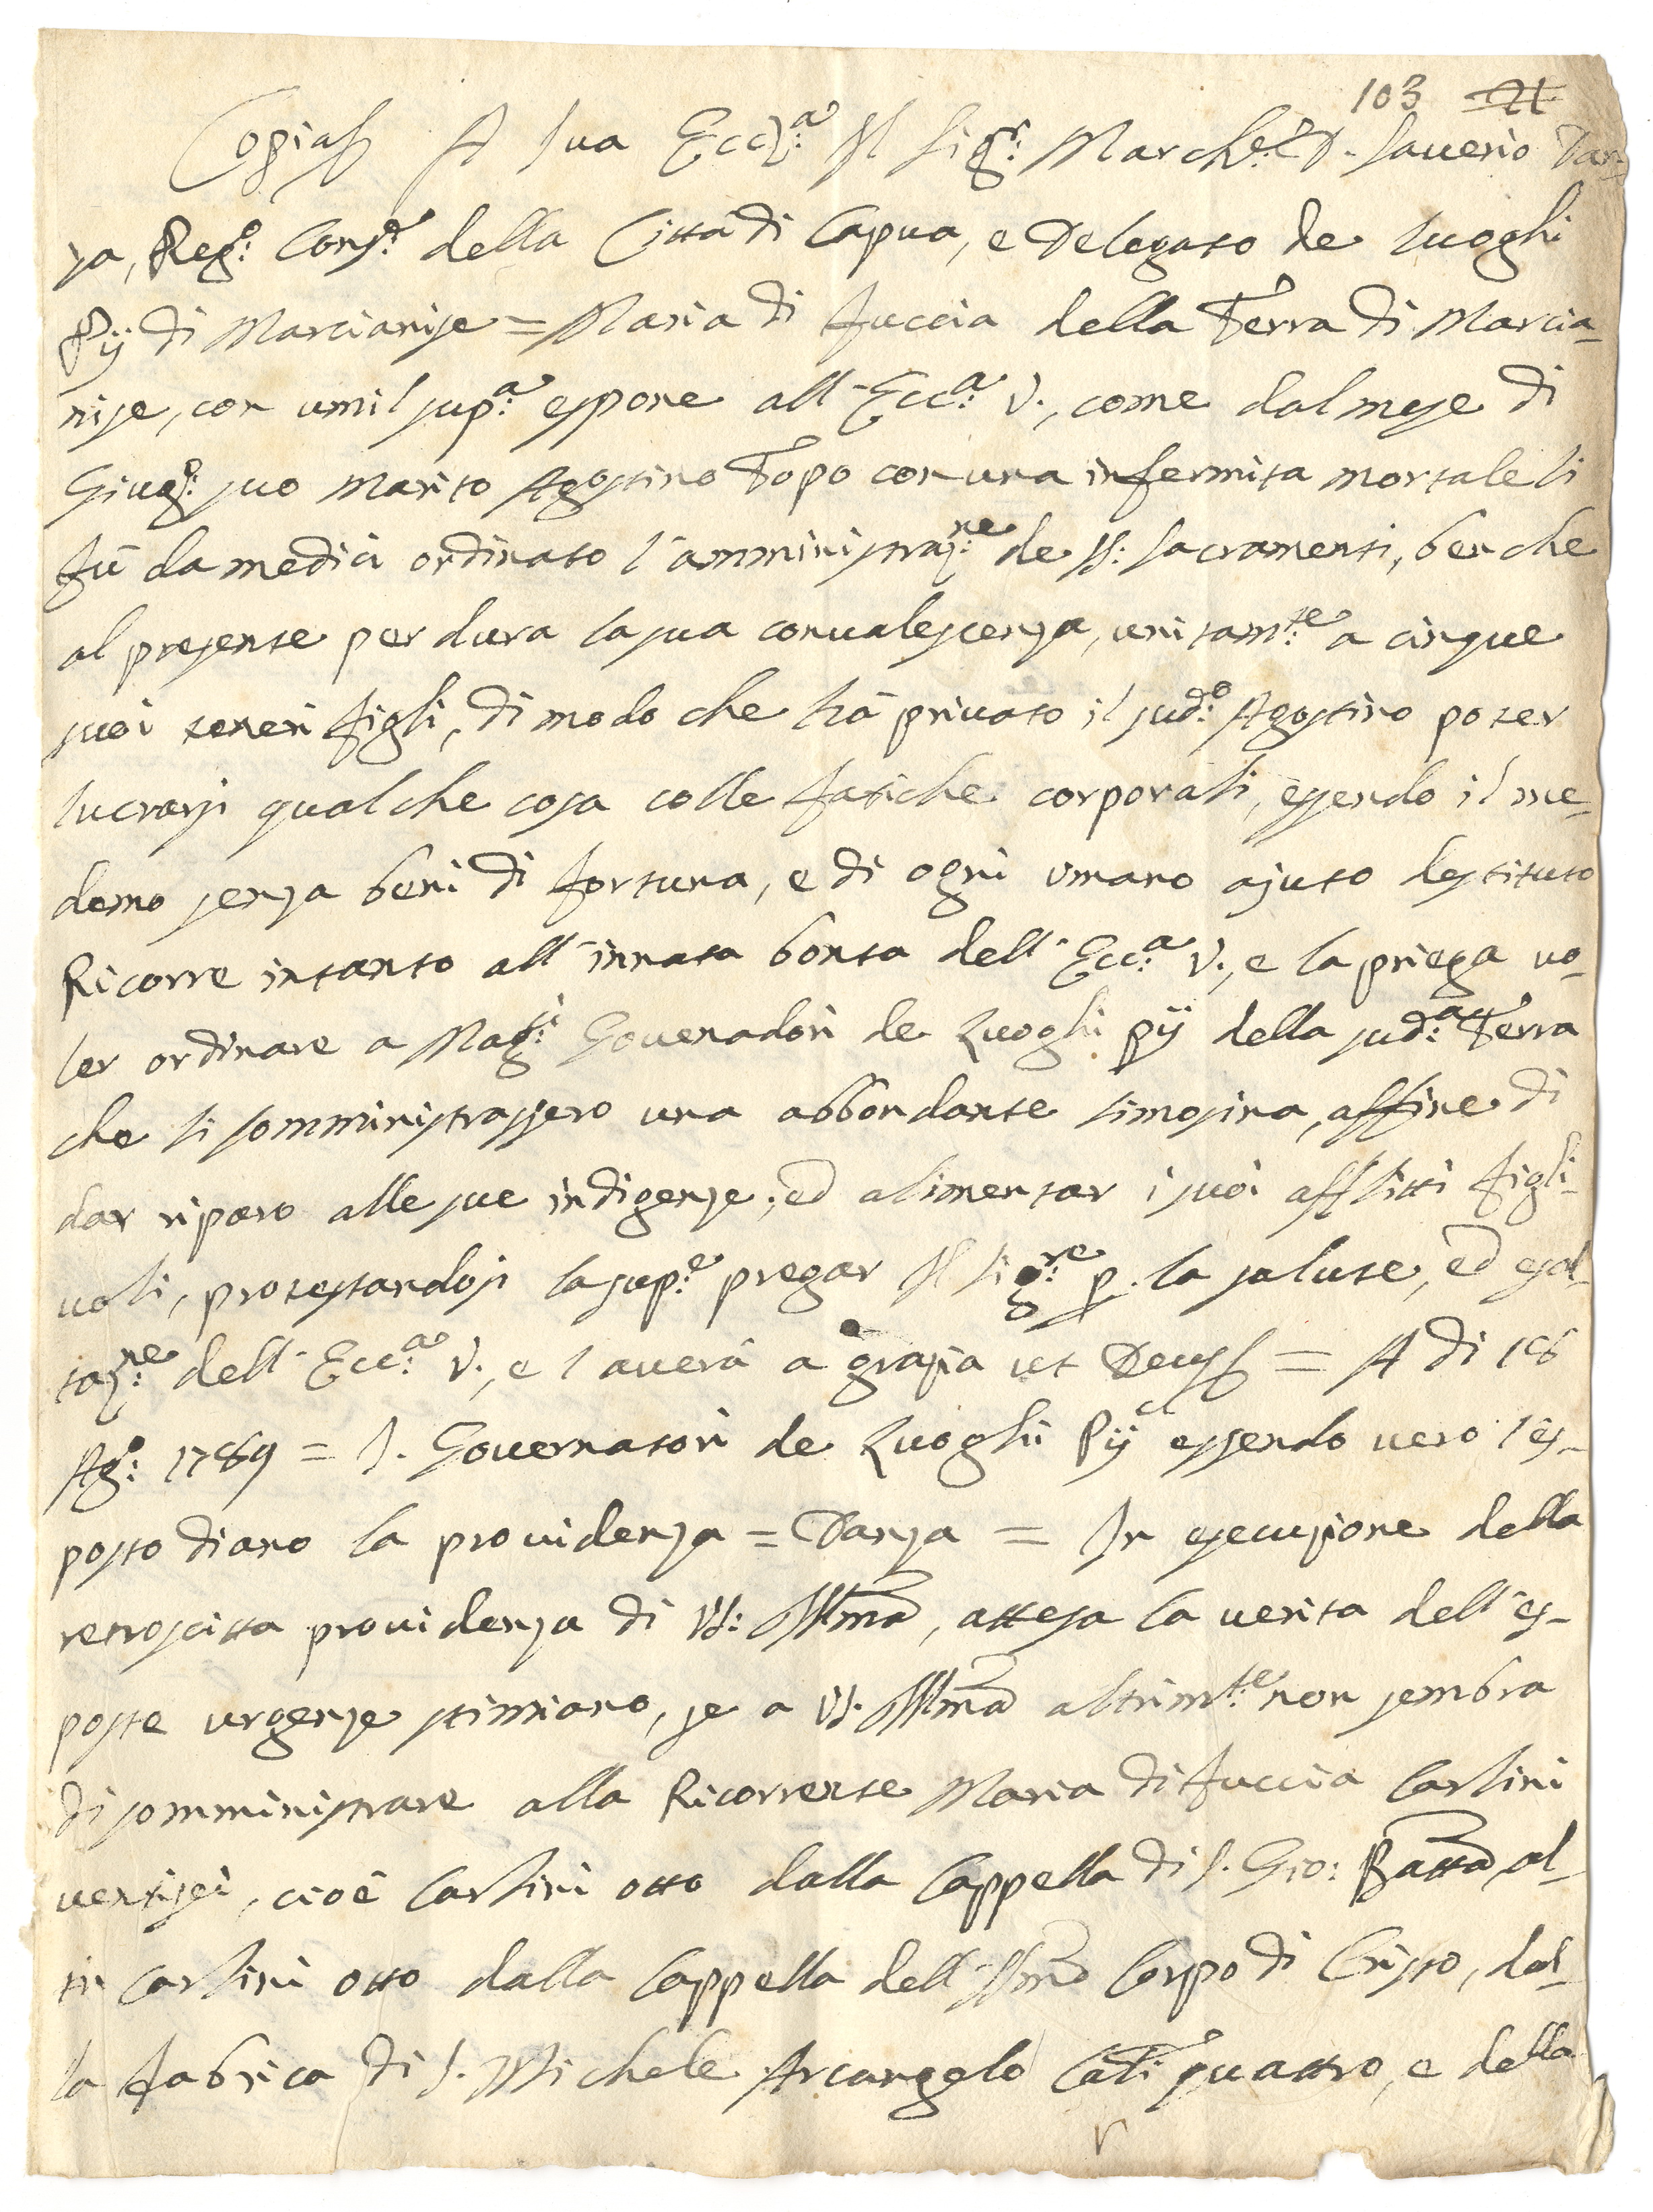 103
Copia A Sua Ecc.za Il Sig.r March.e D. Saverio Dan-
za, Reg.o Cons.re della Città di Capua, e Delegato de Luoghi
Pÿ di Marcianise = Maria di Fuccia della Terra di Marcia-
nise, con umil sup.a espone all'Ecc.a V., come dal mese di
Giug.o suo marito Agostino Topo con una infermita mortale li
fù da medici ordinato l'amministraz.ne de SS: Sacramenti, benche
al presente per dura la sua convalescenza, unitam.te a cinque
suoi teneri figli, di modo che hà privato il sud.o Agostino poter
lucrarsi qualche cosa colle fatiche corporali, essendo il me-
demo senza beni di fortuna, e di ogni umano ajuto destituto
Ricorre intanto all'innata bonta dell'Ecc.a V., e la priega vo-
ler ordinare a Mag.ci Governadori de Luoghi Pÿ della sud.a Terra
che li somministrassero una abbondante limosina, affine di
dar riparo alle sue indigenze, ed alimentar i suoi afflitti figli-
uoli, protestandosi la sup.e pregar Il Sig.re p. la salute, ed esal-
taz.ne dell'Ecc.a V., e l'averà a grazia ut Deus = A di 18
Ag.o 1789 = I. Governatori de Luoghi Pÿ essendo vero l'es-
posto diano la providenza = Danza = In esecuzione della
retroscitta providenza di VS: Ill͞ma, attesa la verita dell'es-
poste urgenze stimiamo, se a VS. Ill͞ma altrim.te non sembra
di somministrare alla Ricorrente Maria di Fuccia Carlini
ventisei, cioè Carlini otto dalla Cappella di S. Gio: Batta, al-
tri Carlini otto dalla Cappella dell'SS͞mo Corpo di Cristo, dal-
la fabrica di S. Michele Arcangelo Cãli quattro, e della